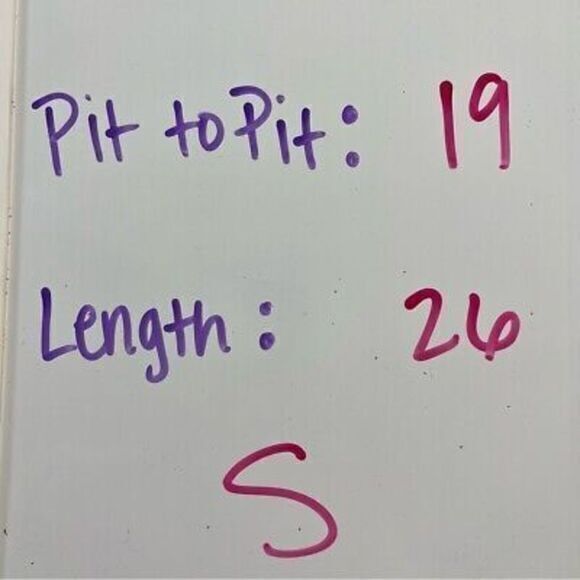 Pit to Pit: 19
Length: 26
S